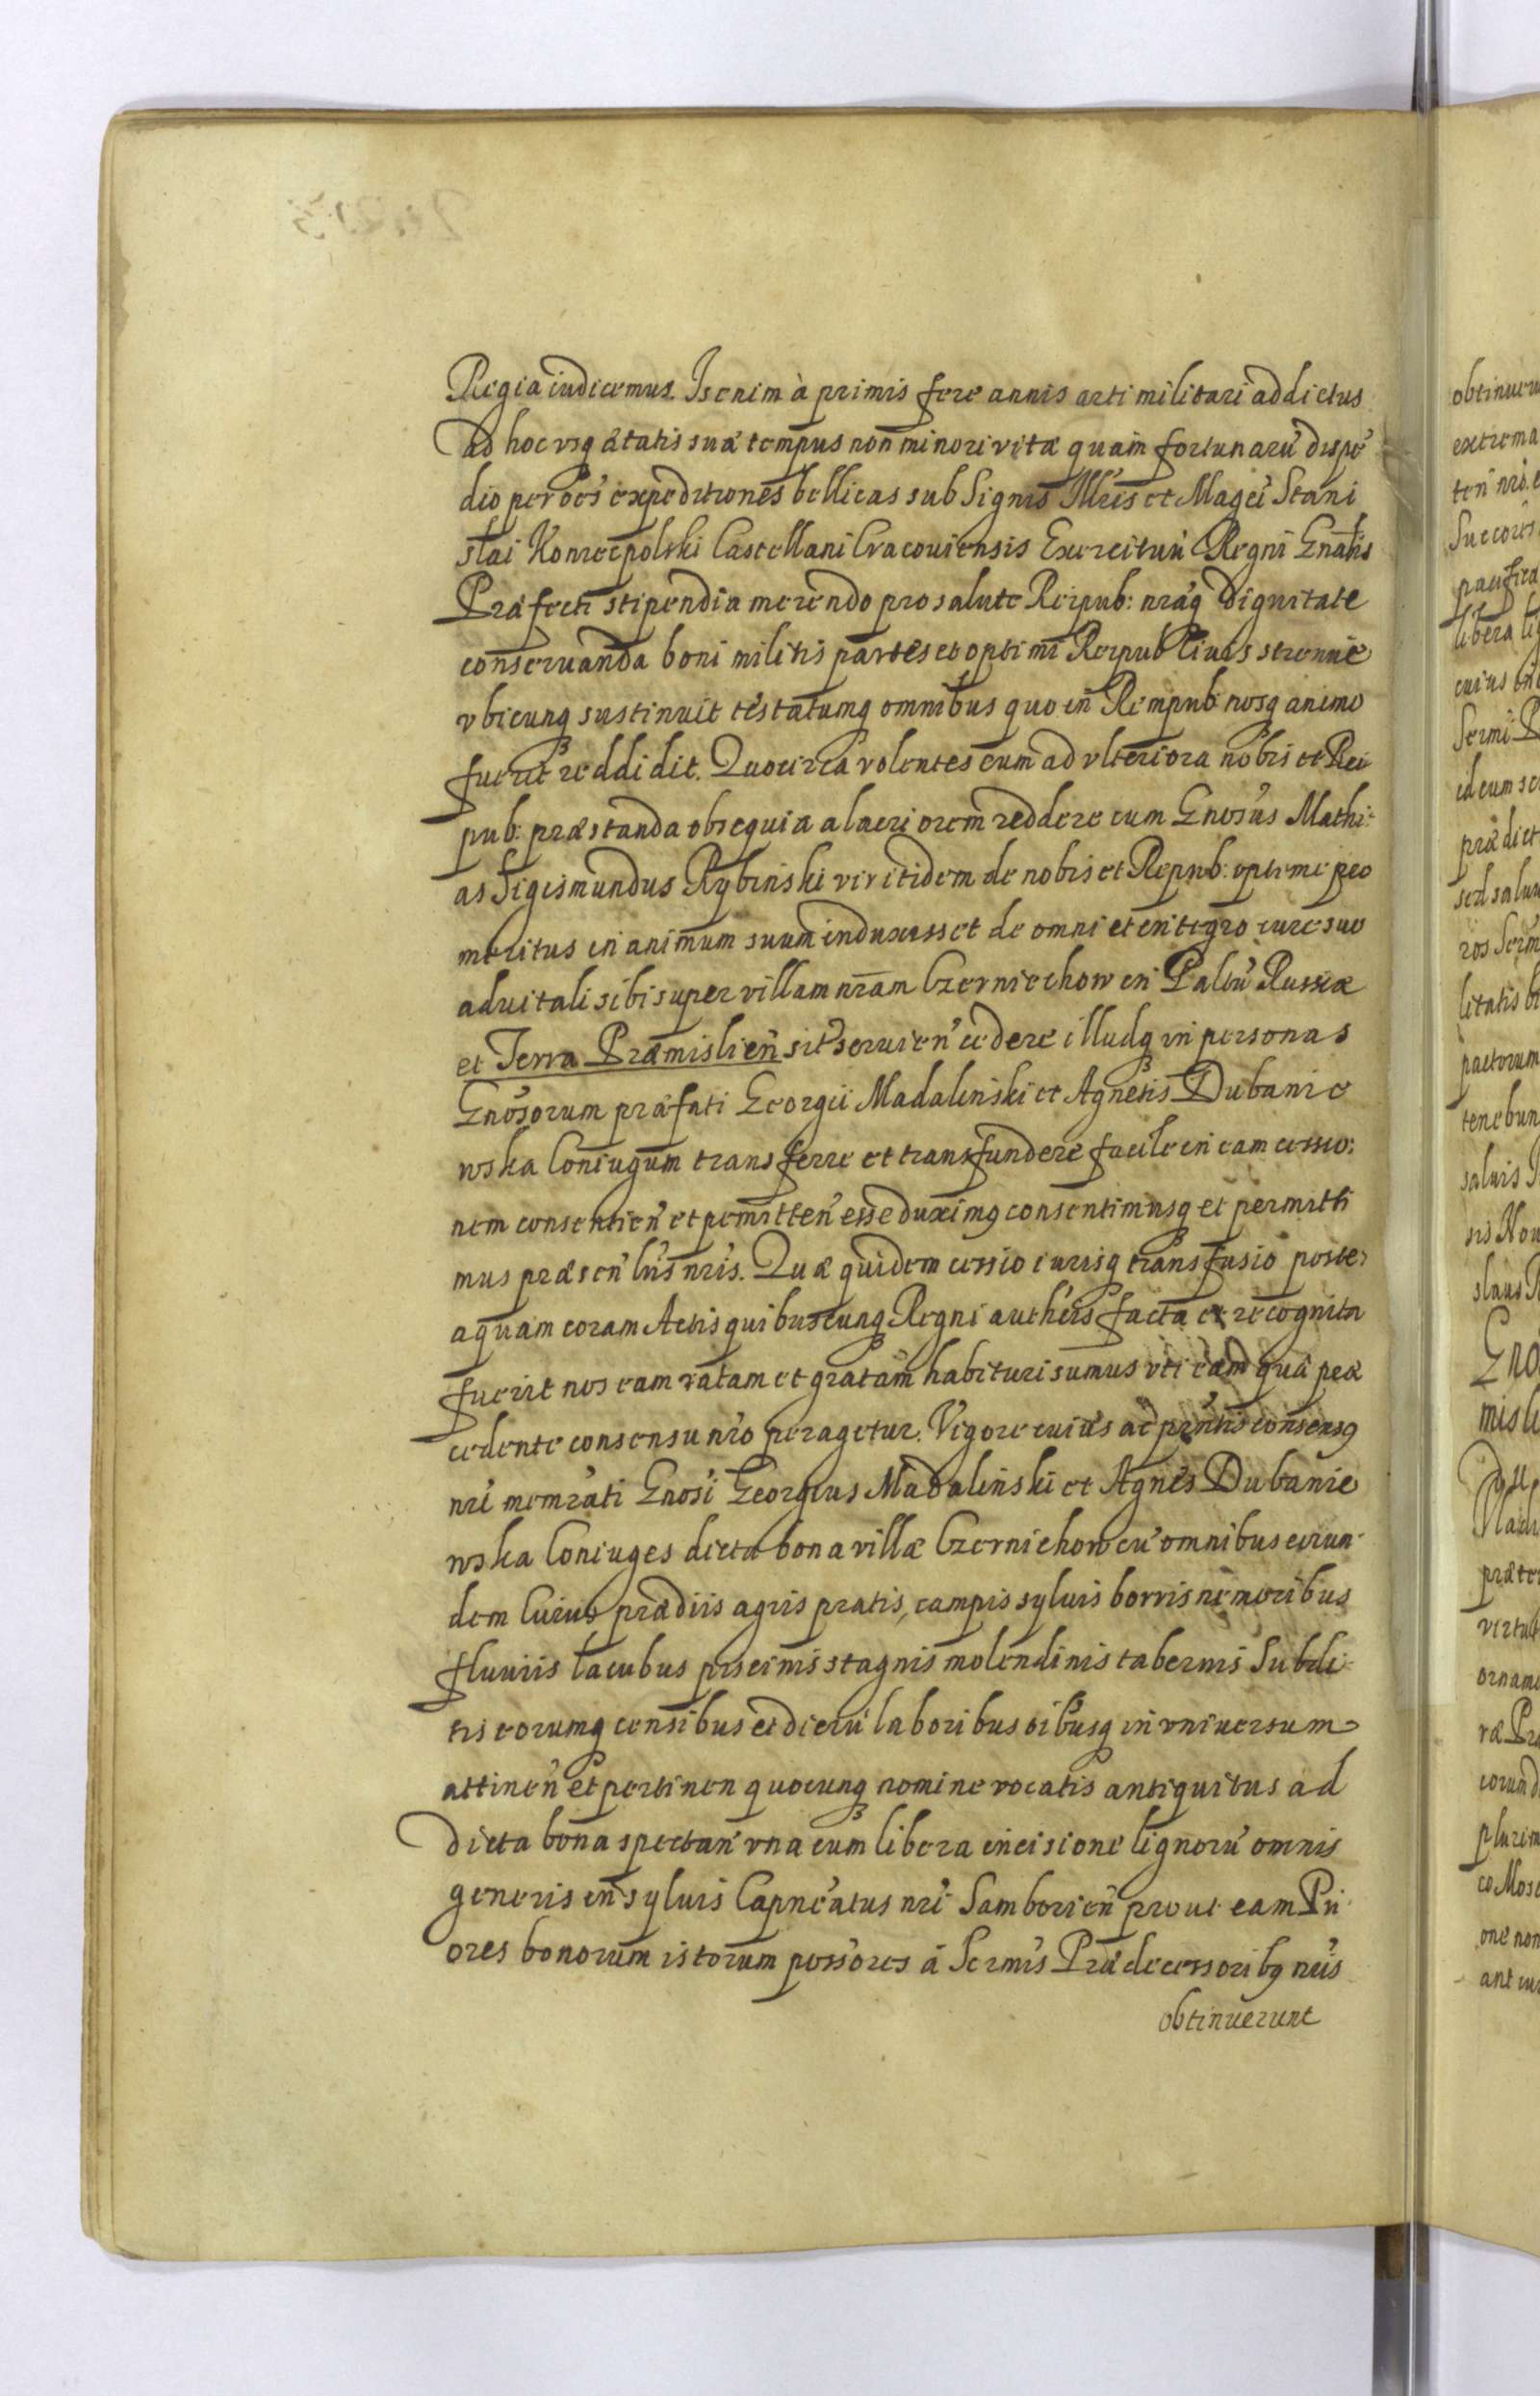 Regia iudicemus. Is enim à primis fere annis arti militari addictus
ad hoc vsq ætatis suæ tempus non minori vitæ quàm fortunarũ dispẽ
dio per oẽs expeditiones bellicas sub Signis Illris et Magci Stani
slai Koniecpolski Castellani Cracouiensis Exercituũ Regni Gnalis
Præfecti stipendia merendo pro salute Reipub: nraq Dignitate
conseruanda boni militis partes et optimi Reipub Ciuis strenue
vbicunq sustinuit testatumq omnibus quo in Rempub: nosq animo
fuerit reddidit. Quocirca volentes eum ad vlteriora nobis et Rei
pub: præstanda obsequia alacriorem reddere cum Gnosus Mathi-
as Sigismundus Rybinski vir itidem de nobis et Repub: optime pro
meritus in animum suum induxisset de omni et integro iure suo
aduitali sibi super villam nram Czerniechow in Paltu Russiæ
et Terra Præmislien sit seruien cedere illudq in personas
Gnosorum præfati Georgii Madalinski et Agnetis Dubanie
wska Coniugum transferre et transfundere facile in eam cessio:
nem consentien et permitten esse duximq consentimusq et permitti
mus præsen lris nris. Quæ quidem cessio iurisq transfusio poste
aquam coram Actis quibuscunq Regni authcis facta et recognita
fuerit nos eam ratam et gratam habituri sumus vti eam quæ præ
cedente consensu nro peragetur. Vigore cuius ac prntis consensq
nri memrati Gnosi Georgius Madalinski et Agnes Dubanie
wska Coniuges dicta bona villæ Czerniehow cũ omnibus eorun-
dem Curiis prædiis agris pratis, campis syluis borris nemoribus
fluuiis lacubus piscinis stagnis molendinis tabernis Subdi-
tis eorumq censibus et dierũ laboribus oibusq in vniuersum
attinen et pertinen quocunq nomine vocatis antiquitus ad
dicta bona spectan vna cum libera incisione lignorũ omnis
generis in syluis Capneatus nri Samborien prout eam Pri
ores bonorum istorum possores á Sermis Prædecessoribq nris
obtinuerunt